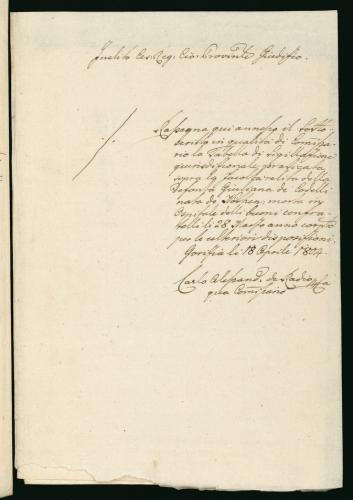 Inclito Ces. Reg. Civ. Provinle Giudizio.
Rassegna qui annesso il sotto
scritto in qualità di Comissa
rio la Tabella di Sigillazione
giurisdizionale praticata
sopra la facoltà relita della
Defonta Giuliana de
nata de morta in
Ospitale delli buoni confra
telli li 28 Marzo anno corrte
per le ulteriori disposizioni.
Gorizia li 18 Aprile 1804.
Carlo Alessand. de
qua Comissario